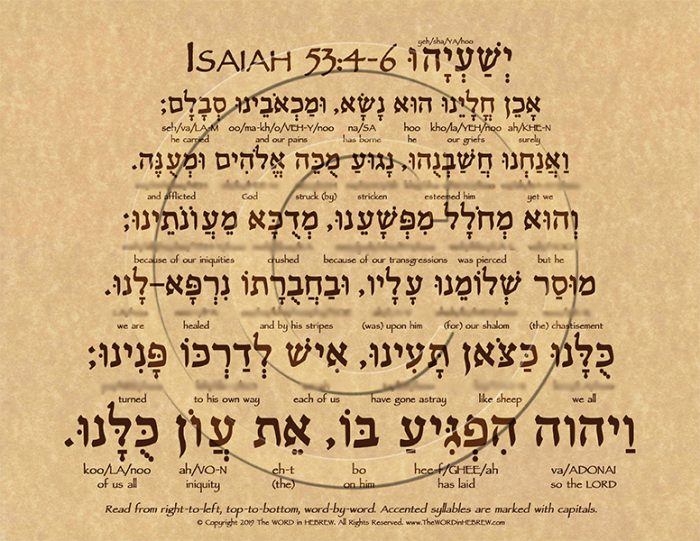 yeh/sha/YA/noo
ISAIAH 53:4-6 יְשַׁעְיָהוּ
אָכֵן חֳלָיֵנוּ הוּא נָשָׂא, וּמַכְאֹבֵינוּ סְבָלָם;
seh/va/LA-M oo/ma-kh/o/VEH-Y/noo na/SA hoo kho/la/YEH/noo ah/KHE-N
he carried and our pains has borne he our griefs surely
וַאֲנַחְנוּ חֲשַׁבְנֻהוּ, נָגוּעַ מֻכֵּה אֱלֹהִים וּמְעֻנֶּה.
and afflicted God struck (by) stricken esteemed him yet we
וְהוּא מְחֹלָל מִפְּשָׁעֵנוּ, מְדֻכָּא מֵעֲוֺנֹתֵינוּ;
because of our iniquities crushed because of our transgressions was pierced but he
מוּסַר שְׁלוֹמֵנוּ עָלָיו, וּבַחֲבֻרָתוֹ נִרְפָּא-לָנוּ.
we are healed and by his stripes (was) upon him (for) our shalom (the) chastisement
כֻּלָּנוּ כַּצֹּאן תָּעִינוּ, אִישׁ לְדַרְכּוֹ פָּנִינוּ;
turned to his own way each of us have gone astray like sheep we all
וַיהוָה הִפְגִּיעַ בּוֹ, אֵת עֲוֺן כֻּלָּנוּ.
koo/LA/noo ah/VO-N eh-t bo hee-f/GHEE/ah va/ADONAI
of us all iniquity (the) on him has laid so the LORD
Read from right-to-left, top-to-bottom, word-by-word. Accented syllables are marked with capitals.
© Copyright 2019 The WORD in HEBREW. All Rights Reserved. www.TheWORDinHEBREW.com